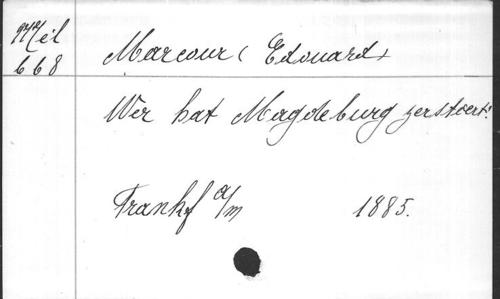 Mél
668
Marcour (Edouard)
Wer hat Magdeburg zerstoert?
Frankf a/m 1885.